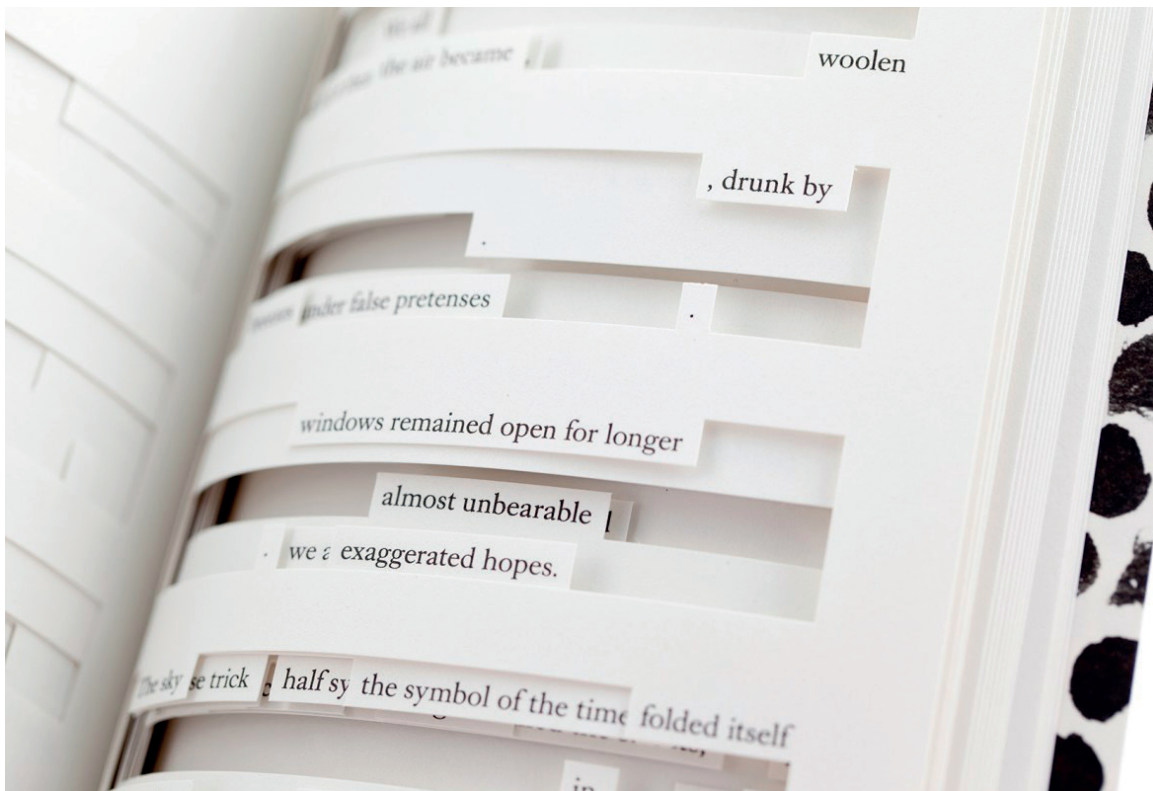 the air became , woolen
, drunk by
.
under false pretenses .
windows remained open for longer
almost unbearable
. we a exaggerated hopes.
The sky se trick half sy the symbol of the time folded itself
in